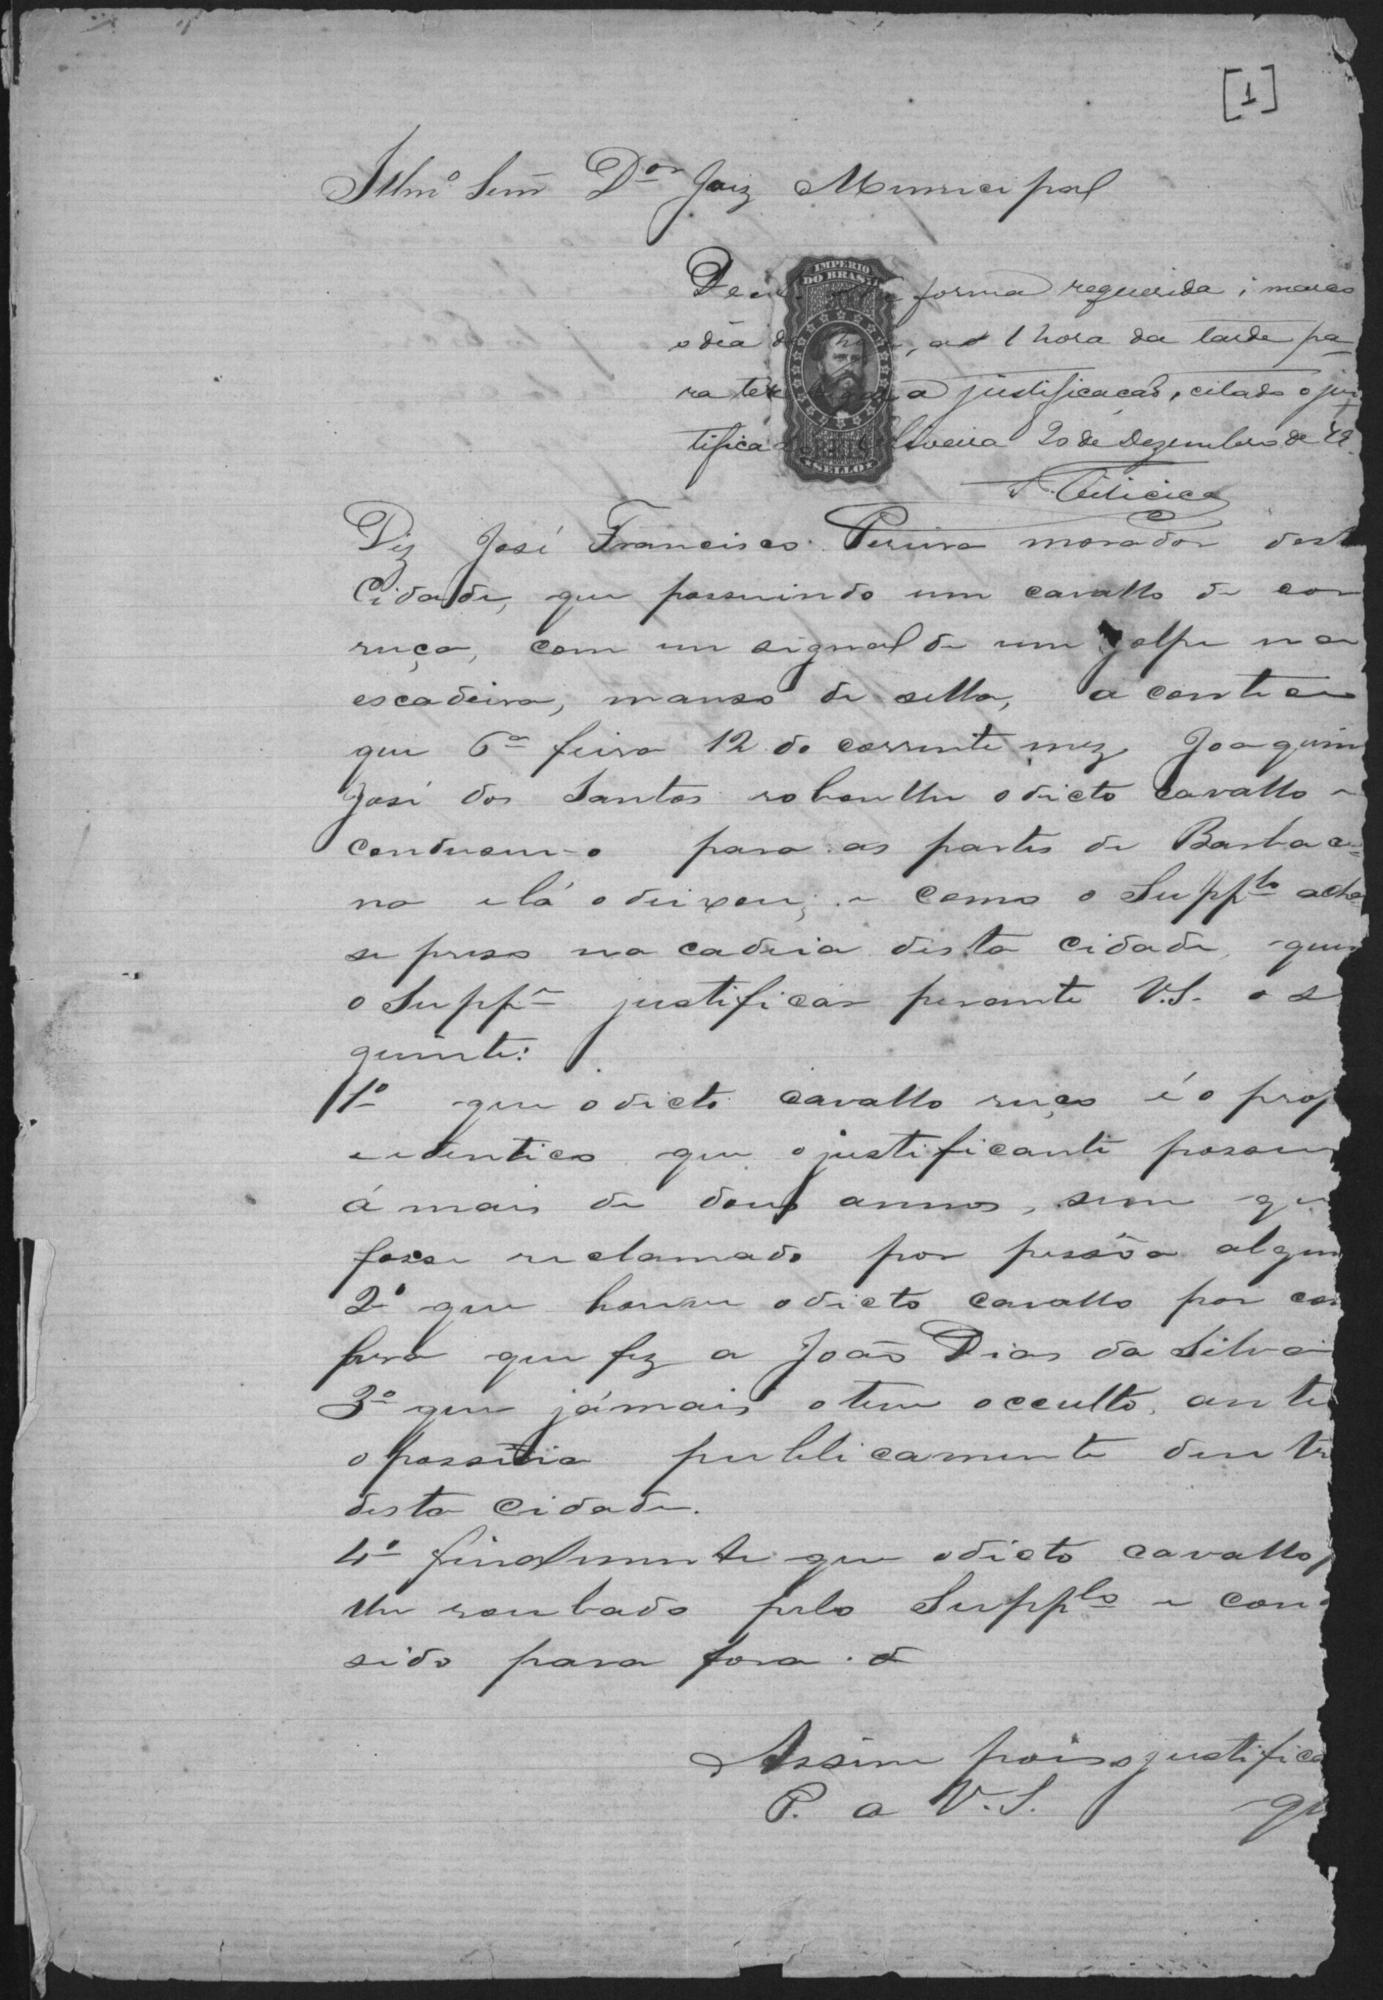 [1]
Illmº Senr Dor Juiz Municipal
IMPERIO
DO BRASIL
forma requerida; marco
o dia de hoje, as 1 hora da tarde pa-
ra ter lugar a justificacaõ, citado o jus
tifica Oliveira 20 de Dezembro de 79.
SELLO
Diz José Francisco Pereira morador dest
Cidade, que possuindo um cavallo de cor
ruça, com um signal de um golpe na
escadeira, manso de sella, aconteceu
que 6ª feira 12 do corrente mez, Joaquim
José dos Santos roboulhe o dicto cavallo e
condusiu-o para as partes de Barbace=
na e lá o deixou; e como o Suppdo acha
se preso na cadeia desta cidade, quer
o Suppe justificar perante V.S. o se
guinte:
1º que o dicto cavallo ruço é o prop
e identico que o justificante possue
á mais de dous annos, sem que
fosse reclamado por pessôa algum
2º que houve o dicto cavallo por com
pra que fez a João Dias da Silva
3º que jámais o teve occulto, ante
o possuia publicamente dentr
desta Cidade.
4º finalmente que o dicto cavallo f
lhe roubado pelo Suppdo e condu
sido para fora. d
Assim pois o justifica
P. a V.S. qu